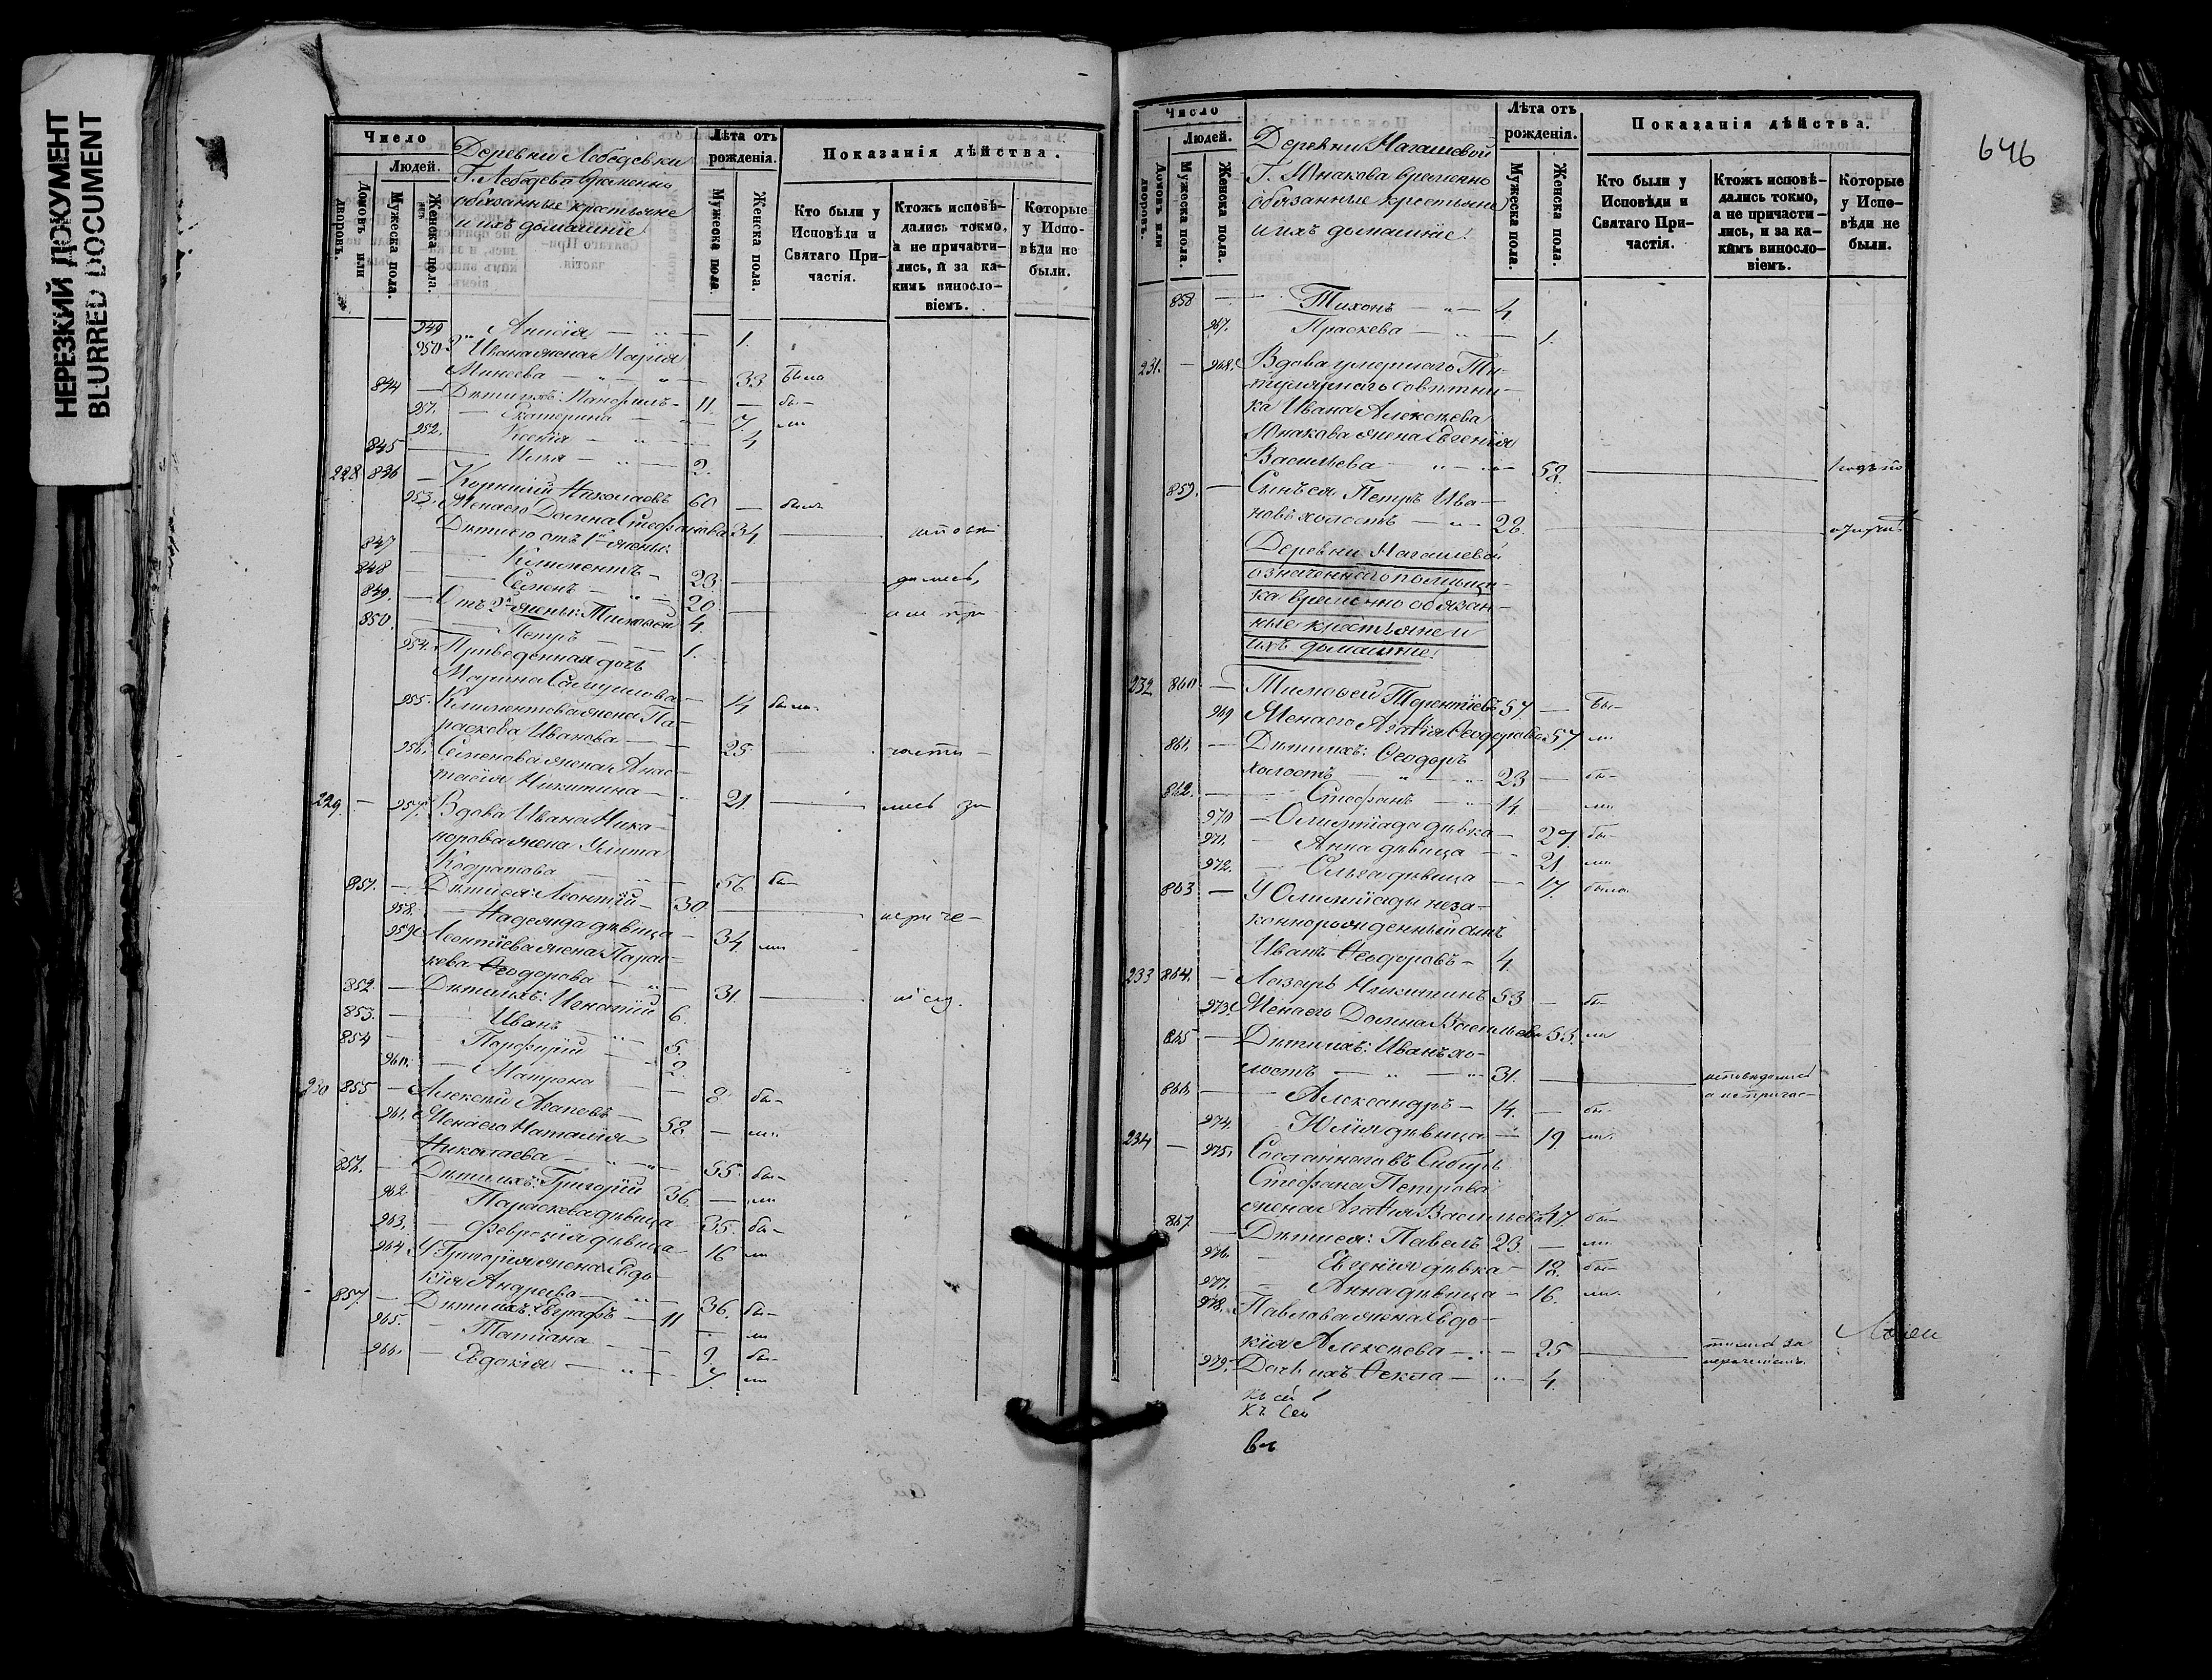 НЕРЕЗКИЙ ДОКУМЕНТ
BLURRED DOCUMENT
Число
Людей.
Домовъ или дворовъ.
Мужеска пола.
Женска пола.
Деревни Лебедевки
Г. Лебедева временно
обязанные крестьяне
и ихъ домашніе:
Лѣта отъ рожденія.
Мужеска пола.
Женска пола.
Показанія дѣйства.
Кто были у Исповѣди и Святаго Причастія.
Ктожъ исповѣдались токмо, а не причастились, и за какимъ винословіемъ.
Которые у Исповѣди не были.
949 Анисія — 1.
950. Ивана жена Марія
Минеева — 33 была
844 — Дѣти ихъ: Памфилъ — 11. — бы-
951. — Екатерина — 7. ли
952. Ксенія — 4
845 — Илья — 2.
228 846 — Корнилій Николаевъ 60 — былъ
953. Жена его Домна Стефанова 34
Дѣти его отъ 1й жены:
847 — Климентъ — 23.
848 — Семенъ — 20.
849. — Отъ 2й жены: Тимоѳей 4.
850. — Петръ — 1.
954. Приведенная дочь
Марина Самуилова — 14 была
955. Климентова жена Па-
раскева Иванова — 25.
956. Семенова жена Анас-
тасія Никитина — 21.
229. — 957. Вдова Ивана Ника-
норова жена Улита
Кодратова — 56 бы-
851. — Дѣти ея: Леонтій — 30.
958. Надежда дѣвица — 34 ли
959. Леонтіева жена Парас-
кева Ѳеодорова — 31.
852. — Дѣти ихъ: Игнатій 6.
853. — Иванъ — 5.
854 — Порфирій — 2.
960. — Матрона — 8
230 855 — Алексѣй Агаповъ — 58. бы-
961. Жена его Наталія
Николаева — 55. ли
856. — Дѣти ихъ: Григорій 36. — бы-
962 Параскева дѣвица — 35. ли
963. — Февронія дѣвица — 16 бы-
964 У Григорія жена Евдо-
кія Андреева — 36. ли
857. — Дѣти ихъ: Евграфъ — 11 бы-
965. — Татіана — 9. ли
966. — Евдокія — 7. бы- ли
646
Число
Людей.
Домовъ или дворовъ.
Мужеска пола.
Женска пола.
Деревни Нагашевой
Г. Юнакова временно
обязанные крестьяне
и ихъ домашніе:
Лѣта отъ рожденія.
Мужеска пола.
Женска пола.
Показанія дѣйства.
Кто были у Исповѣди и Святаго Причастія.
Ктожъ исповѣдались токмо, а не причастились, и за какимъ винословіемъ.
Которые у Исповѣди не были.
858 — Тихонъ — 4.
967. Праскева — 1.
231. — 968. Вдова умершаго Ти-
тулярнаго совѣтни-
ка Ивана Алексѣева
Юнакова жена Евгенія
Васильева — 58.
859. — Сынъ ея Петръ Ива-
новъ холостъ — 28.
Деревни Нагашевой
означеннаго помѣщи-
ка временно обязан-
ные крестьяне и
ихъ домашніе:
232 860. — Тимоѳей Терентіевъ 57 — бы-
969 Жена его Агаѳія Ѳеодорова 57 ли
861. — Дѣти ихъ: Ѳеодоръ
холостъ — 23 — бы-
862. — Стефанъ — 14. — ли
970 — Олимпіада дѣвка — 27. бы-
971. — Анна дѣвица — 21 ли
972. — Ольга дѣвица — 17. была
863 — У Олимпіады неза-
коннорожденный сынъ
Иванъ Ѳеодоровъ — 4.
233 864. — Лазарь Никитинъ 53 — бы-
973. Жена его Домна Васильева 53. ли
865 — Дѣти ихъ: Иванъ хо-
лостъ — 31. исповѣдался
а непричас-
866. — Александръ — 14. — бы-
974. Юлія дѣвица — 19. ли
234 — 975. Сосланнаго въ Сибирь
Стефана Петрова
жена Агаѳія Васильева 47. бы-
867 — Дѣти ея: Павелъ 23. — ли
976. Евгенія дѣвка — 18. бы-
977. — Анна дѣвица — 16. ли
978. Павлова жена Евдо-
кія Алексѣева — 25 тились за
нераченіемъ.
979. Дочь ихъ Ѳекла — 4.